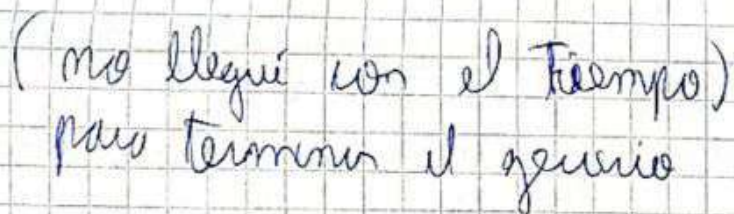 (no llegué con el tiempo)
para terminar el ejercicio